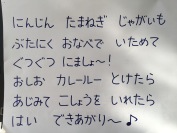 にんじん たまねぎ じゃがいも
ぶたにく おなべで いためて
ぐつぐつ にましょ〜!
おしお カレールー とけたら
あじみて こしょうを いれたら
はい できあがり〜♪